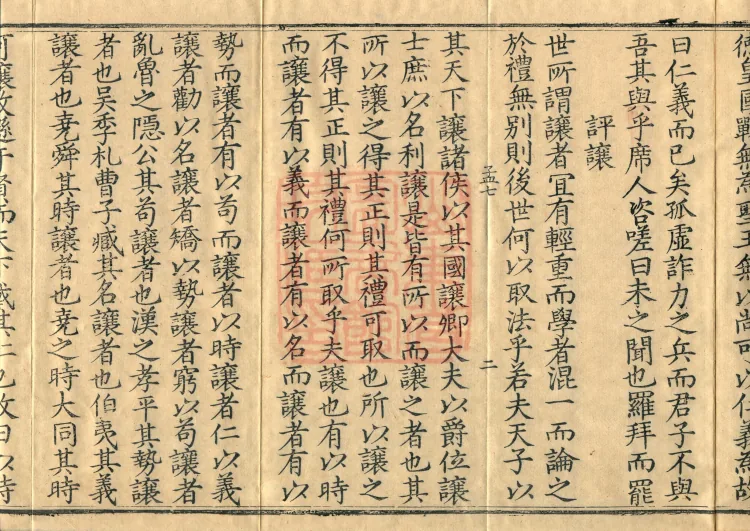 曰仁義而已矣孤虛詐力之兵而君子不與
吾其與乎席人咨嗟曰未之聞也羅拜而罷
評讓
世所謂讓者宜有輕重而學者混一而論之
於禮無別則後世何以取法乎若夫天子以
孟七
二
其天下讓諸侯以其國讓卿大夫以爵位讓
士庶以名利讓是皆有所以而讓之者也其
所以讓之得其正則其禮可取也所以讓之
不得其正則其禮何所取乎夫讓也有以時
而讓者有以義而讓者有以名而讓者有以
勢而讓者有以苟而讓者以時讓者仁以義
讓者勸以名讓者矯以勢讓者窮以苟讓者
亂魯之隱公其苟讓者也漢之孝平其勢讓
者也吳季札曹子臧其名讓者也伯夷其義
讓者也堯舜其時讓者也堯之時大同其時